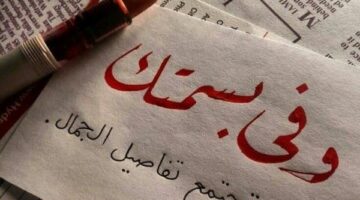 وفي بسمتك
تجتمع تفاصيل الجمال .